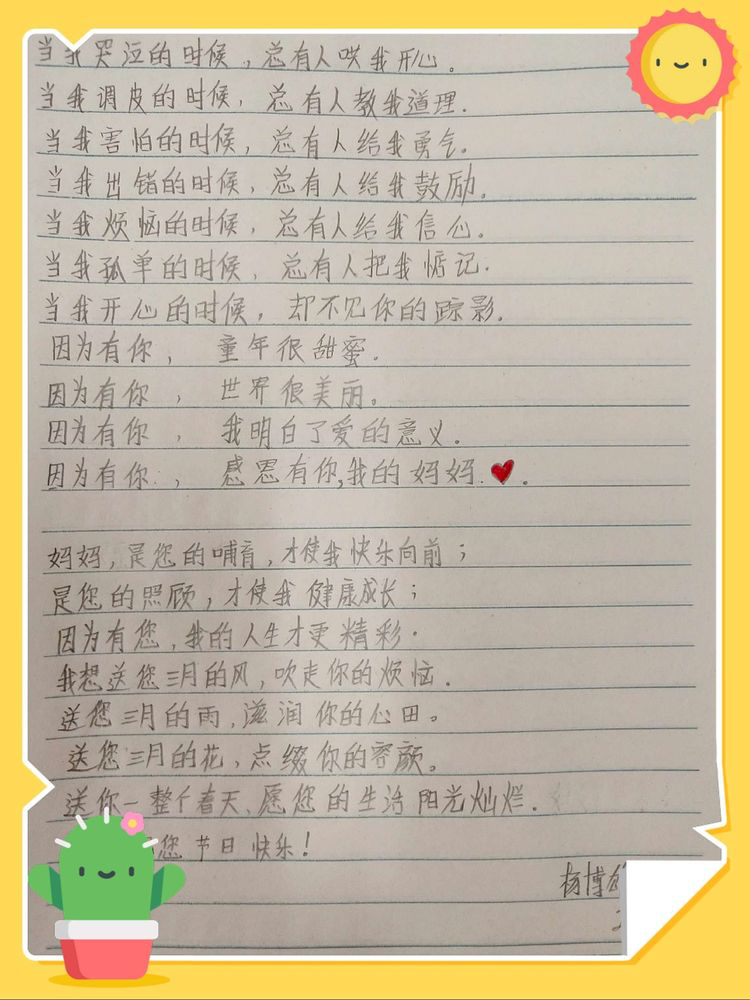 当我哭泣的时候，总有人哄我开心。
当我调皮的时候，总有人教我道理.
当我害怕的时候，总有人给我勇气。
当我出错的时候，总有人给我鼓励。
当我烦恼的时候，总有人给我信心。
当我孤单的时候，总有人把我惦记.
当我开心的时候，却不见你的踪影.
因为有你，童年很甜蜜.
因为有你，世界很美丽。
因为有你，我明白了爱的意义.
因为有你，感恩有你,我的妈妈.❤.
妈妈，是您的哺育，才使我快乐向前；
是您的照顾，才使我健康成长；
因为有您，我的人生才更精彩.
我想送您三月的风，吹走你的烦恼.
送您三月的雨，滋润你的心田。
送您三月的花，点缀你的容颜。
送你一整个春天、愿您的生活阳光灿烂.
您节日快乐！
杨博